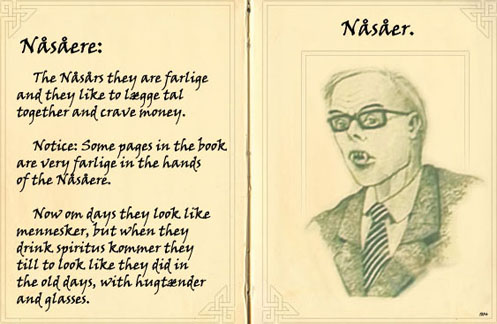 Nåsåere:
The Nåsårs they are farlige
and they like to lægge tal
together and crave money.
Notice: Some pages in the book
are very farlige in the hands
of the Nåsåere.
Now om days they look like
mennesker, but when they
drink spiritus kommer they
till to look like they did in
the old days, with hugtænder
and glasses.
Nåsåer.